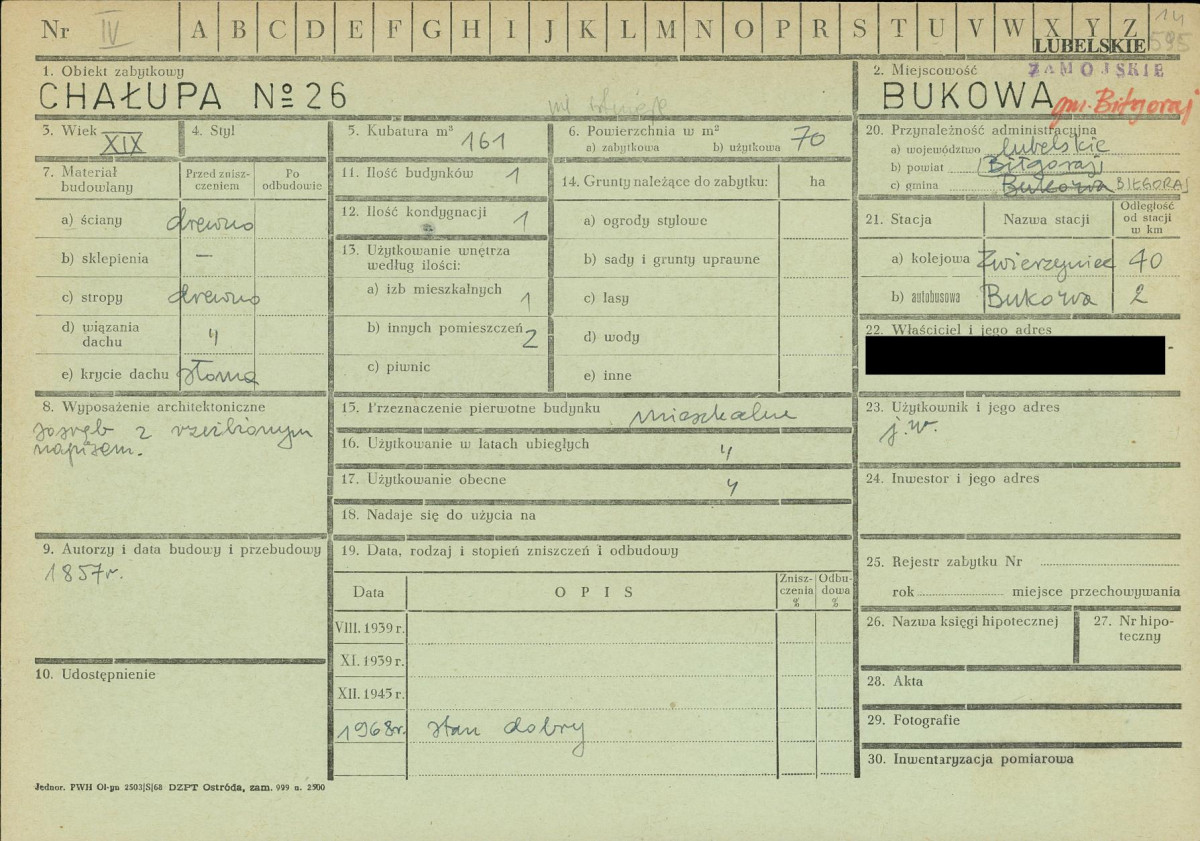 Nr IV A B C D E F G H I J K L M N O P R S T U V W X Y Z 14
LUBELSKIE 595
ZAMOJSKIE
1. Obiekt zabytkowy
CHAŁUPA Nº 26
nie istnieje
2. Miejscowość
BUKOWA gm. Biłgoraj
3. Wiek XIX
4. Styl
5. Kubatura m³ 161
6. Powierzchnia w m²
a) zabytkowa b) użytkowa 70
7. Materiał budowlany
Przed znisz-
czeniem
Po
odbudowie
a) ściany drewno
b) sklepienia —
c) stropy drewno
d) wiązania
dachu "
e) krycie dachu słoma
8. Wyposażenie architektoniczne
sosręb z rzeźbionym
napisem.
9. Autorzy i data budowy i przebudowy
1857r.
10. Udostępnienie
11. Ilość budynków 1
12. Ilość kondygnacji 1
13. Użytkowanie wnętrza
według ilości:
a) izb mieszkalnych 1
b) innych pomieszczeń 2
c) piwnic
14. Grunty należące do zabytku: ha
a) ogrody stylowe
b) sady i grunty uprawne
c) lasy
d) wody
e) inne
15. Przeznaczenie pierwotne budynku mieszkalne
16. Użytkowanie w latach ubiegłych "
17. Użytkowanie obecne "
18. Nadaje się do użycia na
19. Data, rodzaj i stopień zniszczeń i odbudowy
Data OPIS Znisz-
czenia
%
Odbu-
dowa
%
VIII. 1939 r.
XI. 1939 r.
XII. 1945 r.
1968r. stan dobry
20. Przynależność administracyjna
a) województwo lubelskie
b) powiat Biłgoraj
c) gmina Bukowa BIŁGORAJ
21. Stacja Nazwa stacji Odległość
od stacji
w km
a) kolejowa Zwierzyniec 40
b) autobusowa Bukowa 2
22. Właściciel i jego adres
23. Użytkownik i jego adres
j.w.
24. Inwestor i jego adres
25. Rejestr zabytku Nr
rok miejsce przechowywania
26. Nazwa księgi hipotecznej
27. Nr hipo-
teczny
28. Akta
29. Fotografie
30. Inwentaryzacja pomiarowa
Jednor. PWH Ol-yn 2503|S|68 DZPT Ostróda, zam. 999 n. 2500